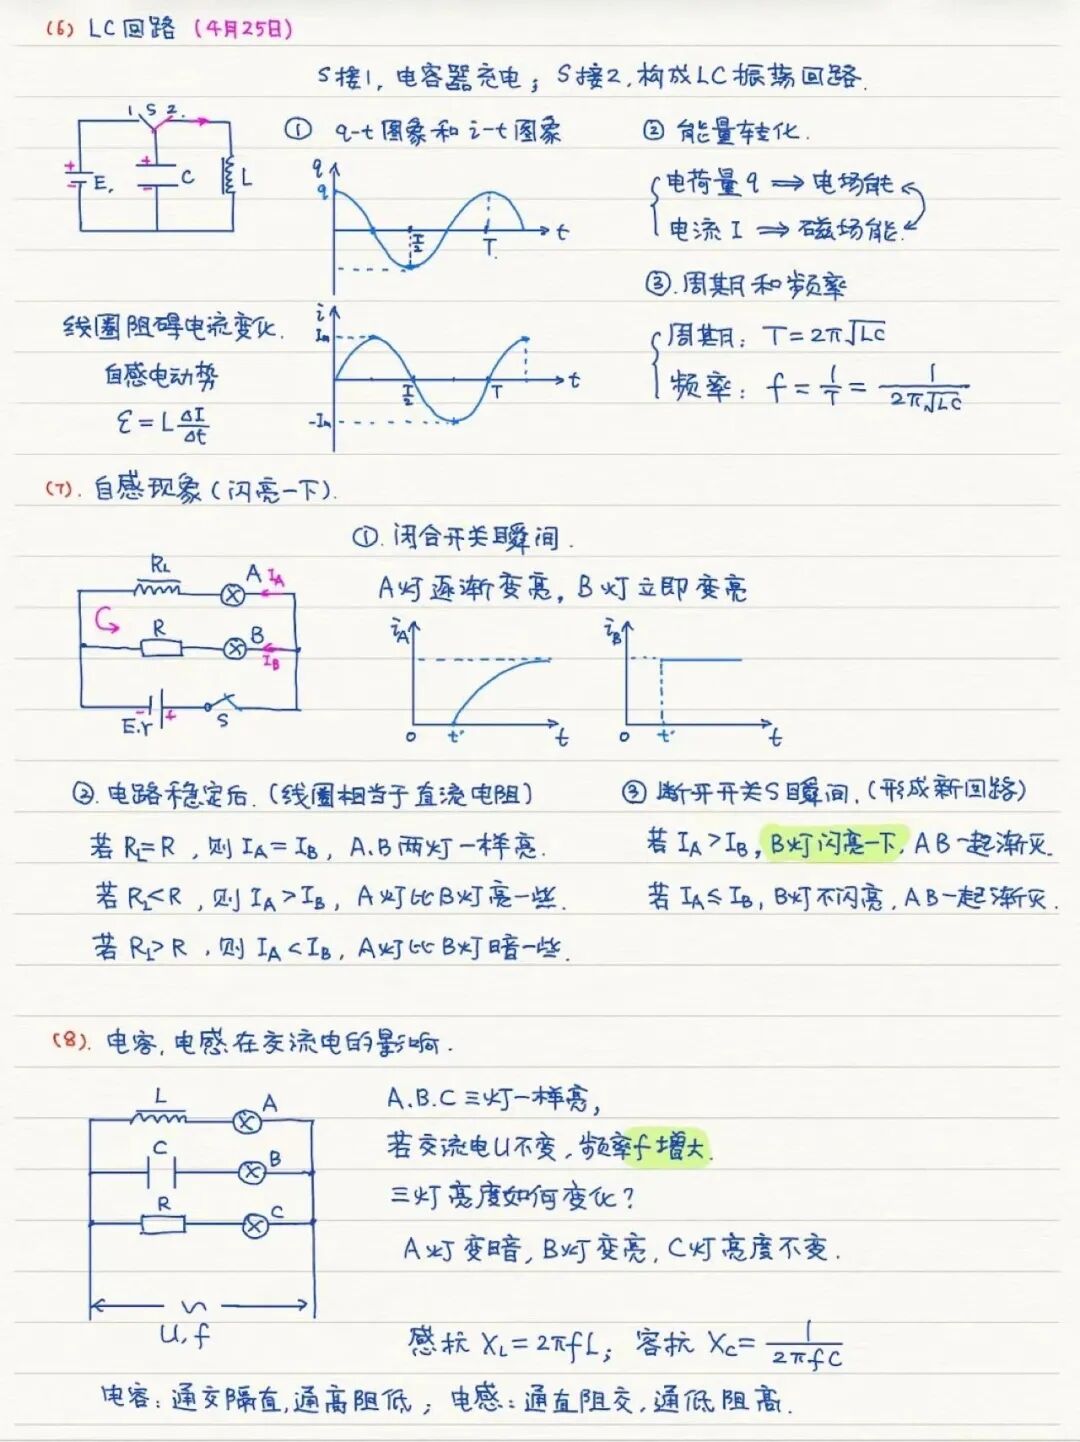 (6) LC回路 (4月25日)
S接1, 电容器充电; S接2, 构成LC振荡回路.
1 S 2.
E, C L
① q-t图象和i-t图象
q q T/2 T t
i Im T/2 T t -Im
② 能量转化.
电荷量q ⟹ 电场能
电流I ⟹ 磁场能
③.周期和频率
周期: T=2π√LC
频率: f = 1/T = 1/2π√LC
线圈阻碍电流变化.
自感电动势
ε=L ΔI/Δt
(7). 自感现象(闪亮一下).
①. 闭合开关瞬间.
A灯逐渐变亮, B灯立即变亮
RL A IA
R B IB
E.r S
iA 0 t' t
iB 0 t' t
②. 电路稳定后. (线圈相当于直流电阻)
若RL=R, 则IA=IB, A.B两灯一样亮.
若RL<R, 则IA>IB, A灯比B灯亮一些.
若RL>R, 则IA<IB, A灯比B灯暗一些.
③ 断开开关S瞬间, (形成新回路)
若IA>IB, B灯闪亮一下, AB一起渐灭.
若IA≤IB, B灯不闪亮, AB一起渐灭.
(8). 电容, 电感在交流电的影响.
L A
C B
R C
U, f
A.B.C三灯一样亮,
若交流电U不变, 频率f增大.
三灯亮度如何变化?
A灯变暗, B灯变亮, C灯亮度不变.
感抗 XL=2πfL; 容抗 XC= 1/2πfC
电容: 通交隔直, 通高阻低; 电感: 通直阻交, 通低阻高.